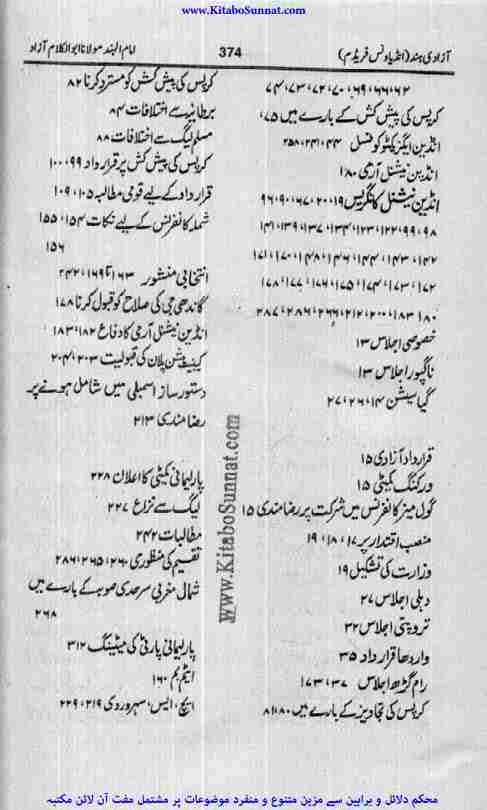 www.KitaboSunnat.com
آزادی ہند (انڈیا ونس فریڈم)
374
امام الہند مولانا ابوالکلام آزاد
۶۲، ۶۶، ۶۹، ۷۰، ۷۲، ۷۳، ۷۴
کرپس کی پیش کش کے بارے میں ۷۵،
انڈین ایگزیکٹو کونسل ۴۴، ۲۴۱، ۲۵۸
انڈین نیشنل آرمی ۱۸۰
انڈین نیشنل کانگریس ۱۹، ۲۰، ۶۷، ۹۰، ۹۶
۹۸، ۹۹، ۱۲۲، ۱۲۳، ۱۳۴، ۱۳۷، ۱۳۹، ۱۴۱
۱۴۲، ۱۴۳، ۱۴۴، ۱۴۶، ۱۴۸، ۱۷۰، ۱۷۱
۱۷۲، ۱۷۳، ۱۷۴، ۱۷۵، ۱۷۶، ۱۷۷، ۱۷۸
۱۸۰، ۱۸۳، ۲۰۰، ۲۱۲، ۲۶۶، ۲۸۶، ۲۸۷
خصوصی اجلاس ۱۳
ناگپور اجلاس ۱۳
گیا سیشن ۱۴، ۲۶، ۲۷
قرارداد آزادی ۱۵
ورکنگ کمیٹی ۱۵
گول میز کانفرنس میں شرکت پر رضامندی ۱۵
منصب اقتدار پر ۱۷، ۱۸، ۱۹
وزارت کی تشکیل ۱۹
دہلی اجلاس ۲۷
تروپتی اجلاس ۳۲
واردھا قرارداد ۳۵
رام گڑھ اجلاس ۳۷، ۱۷۳
کرپس کی تجاویز کے بارے میں ۸۰، ۸۱
کرپس کی پیش کش کو مسترد کرنا ۸۲
برطانیہ سے اختلافات ۸۴
مسلم لیگ سے اختلافات ۸۸
کرپس کی پیش کش پر قرارداد ۹۹، ۱۰۰
قرارداد کے لیے قومی مطالبہ ۱۰۵، ۱۰۹
شملہ کانفرنس کے لیے نکات ۱۵۴، ۱۵۵
۱۵۶
انتخابی منشور ۱۶۳ تا ۱۶۹، ۲۴۲
گاندھی جی کی صلاح کو قبول کرنا ۱۷۸
انڈین نیشنل آرمی کا دفاع ۱۸۲، ۱۸۳
کیبنٹ مشن پلان کی قبولیت ۲۰۳، ۲۰۴
دستور ساز اسمبلی میں شامل ہونے پر۔
رضامندی ۲۱۳
پارلیمانی کمیٹی کا اعلان ۲۲۸
لیگ سے نزاع ۲۲۷
مطالبات ۲۴۲
تقسیم کی منظوری ۲۶۰، ۲۶۵، ۲۸۶
شمال مغربی سرحدی صوبہ کے بارے میں
۲۶۸
پارلیمانی پارٹی کی میٹینگ ۳۱۲
ایٹم بم ۱۶۰
ایچ، ایس، سہروردی ۲۱۹، ۲۲۹
www.KitaboSunnat.com
محکم دلائل و براہین سے مزین متنوع و منفرد موضوعات پر مشتمل مفت آن لائن مکتبہ